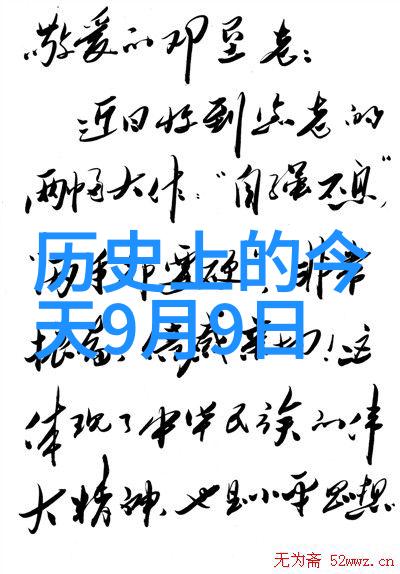 敬爱的邓垦老：
近日收到您老的
两幅大作："自强不息"
历史上的今
天9月9日
体现了中华民族的伟
大精神，也是小平思想
无为斋 52wwz.cn